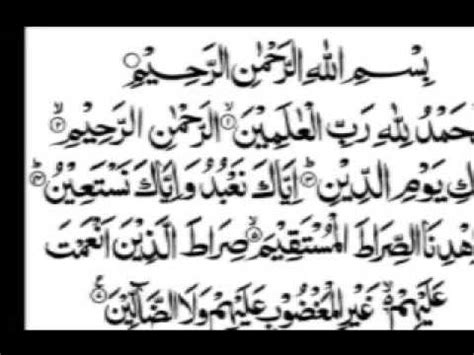 بِسْمِ اللهِ الرَّحْمٰنِ الرَّحِيْمِ
حَمْدُ لِلهِ رَبِّ الْعٰلَمِيْنَ ۙ﴿١﴾ الرَّحْمٰنِ الرَّحِيْمِ ۙ﴿٢﴾
كِ يَوْمِ الدِّيْنِ ؕ﴿٣﴾ اِيَّاكَ نَعْبُدُ وَاِيَّاكَ نَسْتَعِيْنُ ؕ﴿٤﴾
هْدِنَا الصِّرَاطَ الْمُسْتَقِيْمَ ۙ﴿٥﴾ صِرَاطَ الَّذِيْنَ اَنْعَمْتَ
عَلَيْهِمْ ۙ غَيْرِ الْمَغْضُوْبِ عَلَيْهِمْ وَلَا الضَّآلِّيْنَ